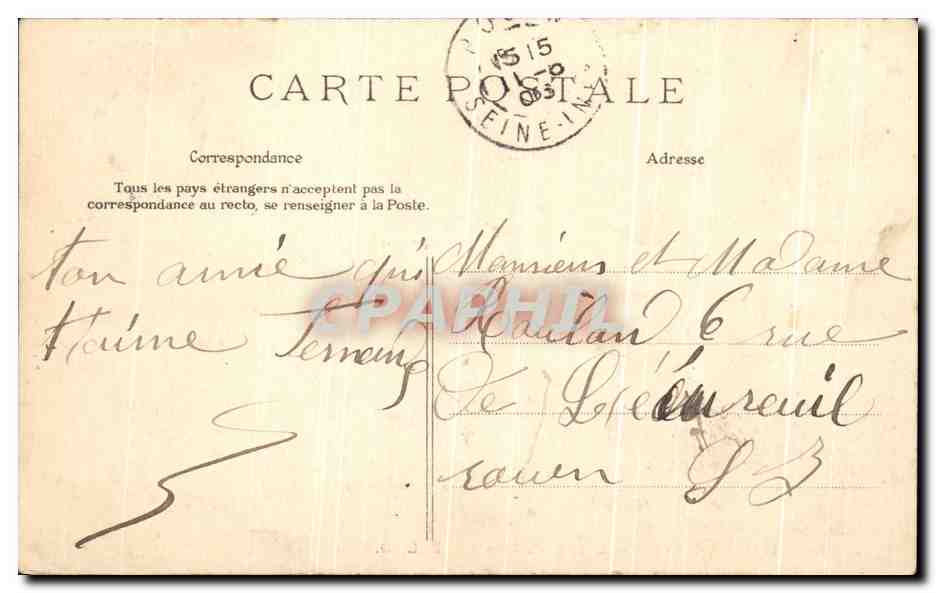 CARTE POSTALE
15 15
11-8
SEINE-IN
Correspondance
Adresse
Tous les pays étrangers n'acceptent pas la
correspondance au recto, se renseigner à la Poste.
ton amie qui
t'aime Fernand
Monsieur et Madame
6 rue
de
rouen S
CPAPHIL